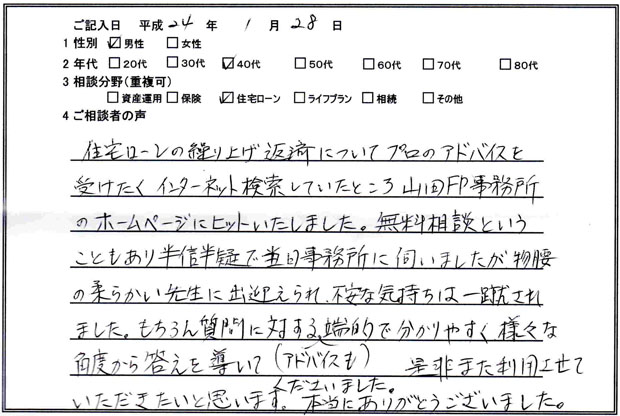 ご記入日 平成 24 年 1 月 28 日
1 性別 ☑男性 □女性
2 年代 □20代 □30代 ☑40代 □50代 □60代 □70代 □80代
3 相談分野(重複可)
□資産運用 □保険 ☑住宅ローン □ライフプラン □相続 □その他
4 ご相談者の声
住宅ローンの繰り上げ返済についてプロのアドバイスを
受けたくインターネット検索していたところ山田FP事務所
のホームページにヒットいたしました。無料相談という
こともあり半信半疑で当日事務所に伺いましたが物腰
の柔らかい先生に出迎えられ、不安な気持ちは一蹴され
ました。もちろん質問に対する端的で分かりやすく様々な
角度から答えを導いて(アドバイスも) 是非また利用させて
くださいました。
いただきたいと思います。本当にありがとうございました。